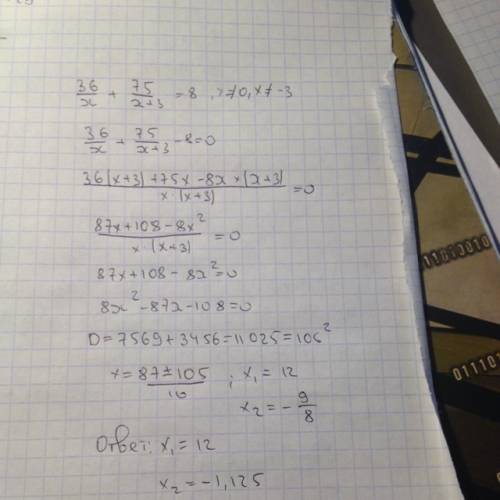 36/x + 75/(x+3) = 8, x≠0, x≠-3
36/x + 75/(x+3) - 8 = 0
(36(x+3) + 75x - 8x × (x+3))/(x·(x+3)) = 0
(87x + 108 - 8x²)/(x·(x+3)) = 0
87x + 108 - 8x² = 0
8x² - 87x - 108 = 0
D = 7569 + 3456 = 11025 = 105²
x = (87 ± 105)/16 ; x₁ = 12
x₂ = -9/8
Ответ: x₁ = 12
x₂ = -1,125